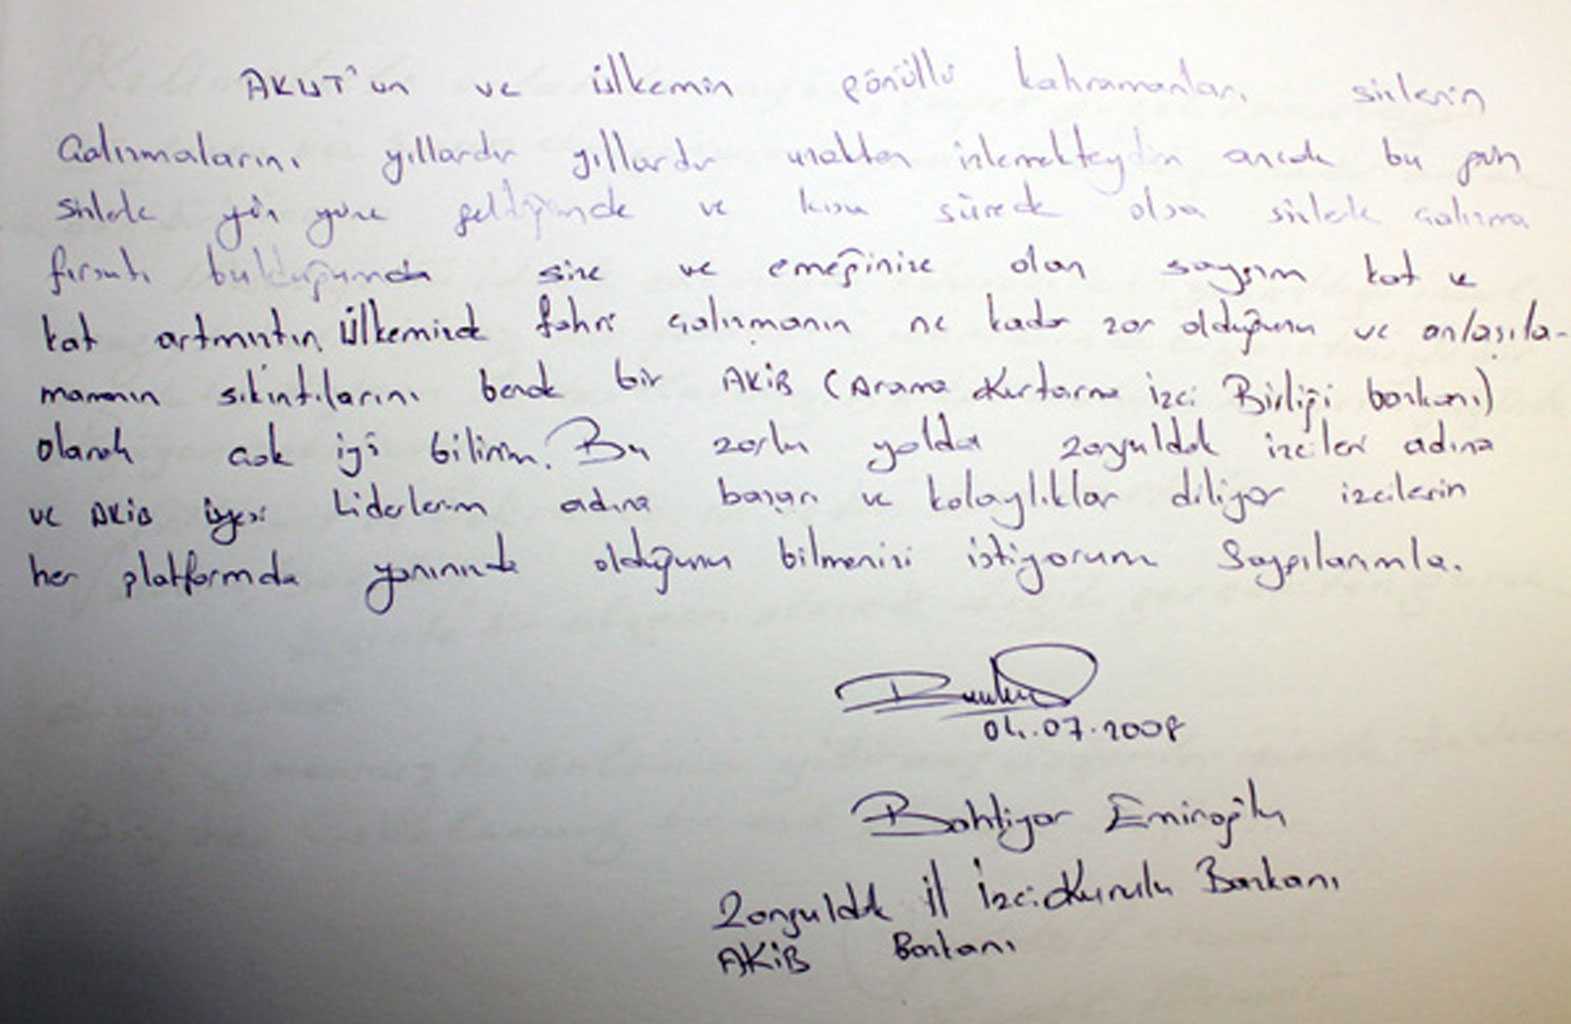 AKUT'un ve ülkemin gönüllü kahramanları sizlerin
çalışmalarını yıllardır yıllardır uzaktan izlemekteydim ancak bu gün
sizlerle yüz yüze geldiğimde ve kısa sürede olsa sizlerle çalışma
fırsatı bulduğumda size ve emeğinize olan saygım kat ve
kat artmıştır. Ülkemizde fahri çalışmanın ne kadar zor olduğunu ve anlaşıla-
mamanın sıkıntılarını bende bir AKİB (Arama Kurtarma İzci Birliği başkanı)
olarak çok iyi bilirim. Bu zorlu yolda Zonguldak izcileri adına
ve AKİB üyesi Liderlerim adına başarı ve kolaylıklar diliyor izcilerin
her platformda yanınızda olduğunu bilmenizi istiyorum Saygılarımla.
04.07.2008
Bahtiyar Emiroğlu
Zonguldak İl İzci Kurulu Başkanı
AKİB Başkanı